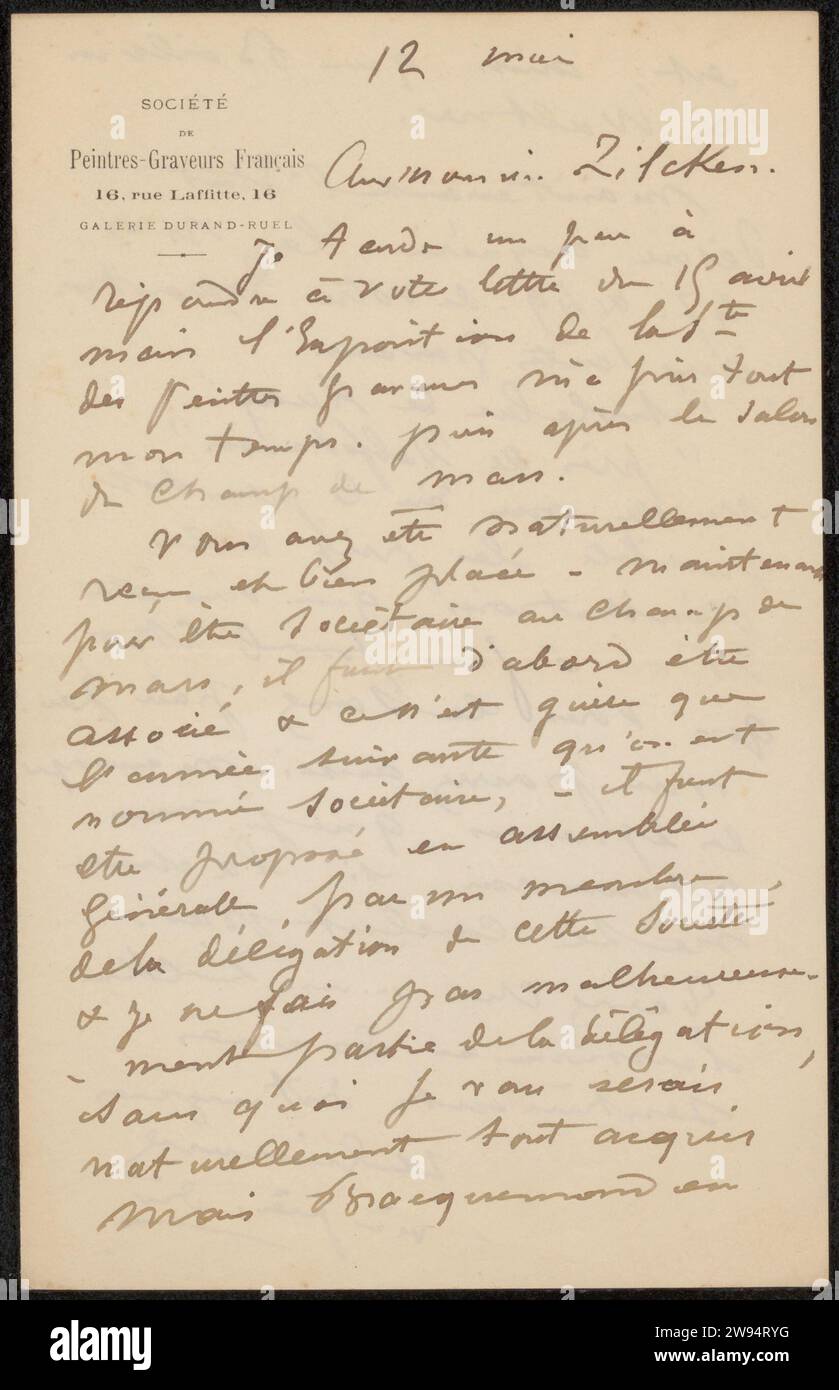 12 mai
SOCIÉTÉ
DE
Peintres-Graveurs Français
16, rue Laffitte, 16
GALERIE DURAND-RUEL
Zilcken.
Je tarde un peu à
répondre à votre lettre du 15 avril
mais l'Exposition de la Sté
des Peintres graveurs m'a pris tout
mon temps. puis après le Salon
du Champ de mars.
Vous avez été naturellement
reçu et bien placé - maintenant
pour être Sociétaire au Champ de
mars, il faut d'abord être
associé & ce n'est guère que
l'année suivante qu'on est
nommé Sociétaire, - il faut
être proposé en assemblée
générale, par un membre
de la délégation de cette Société
& je ne fais pas malheureuse-
- ment partie de la délégation,
sans quoi je vous serais
naturellement tout acquis
mais Bracquemond en
alamy
Image ID: 2W94RYG
www.alamy.com